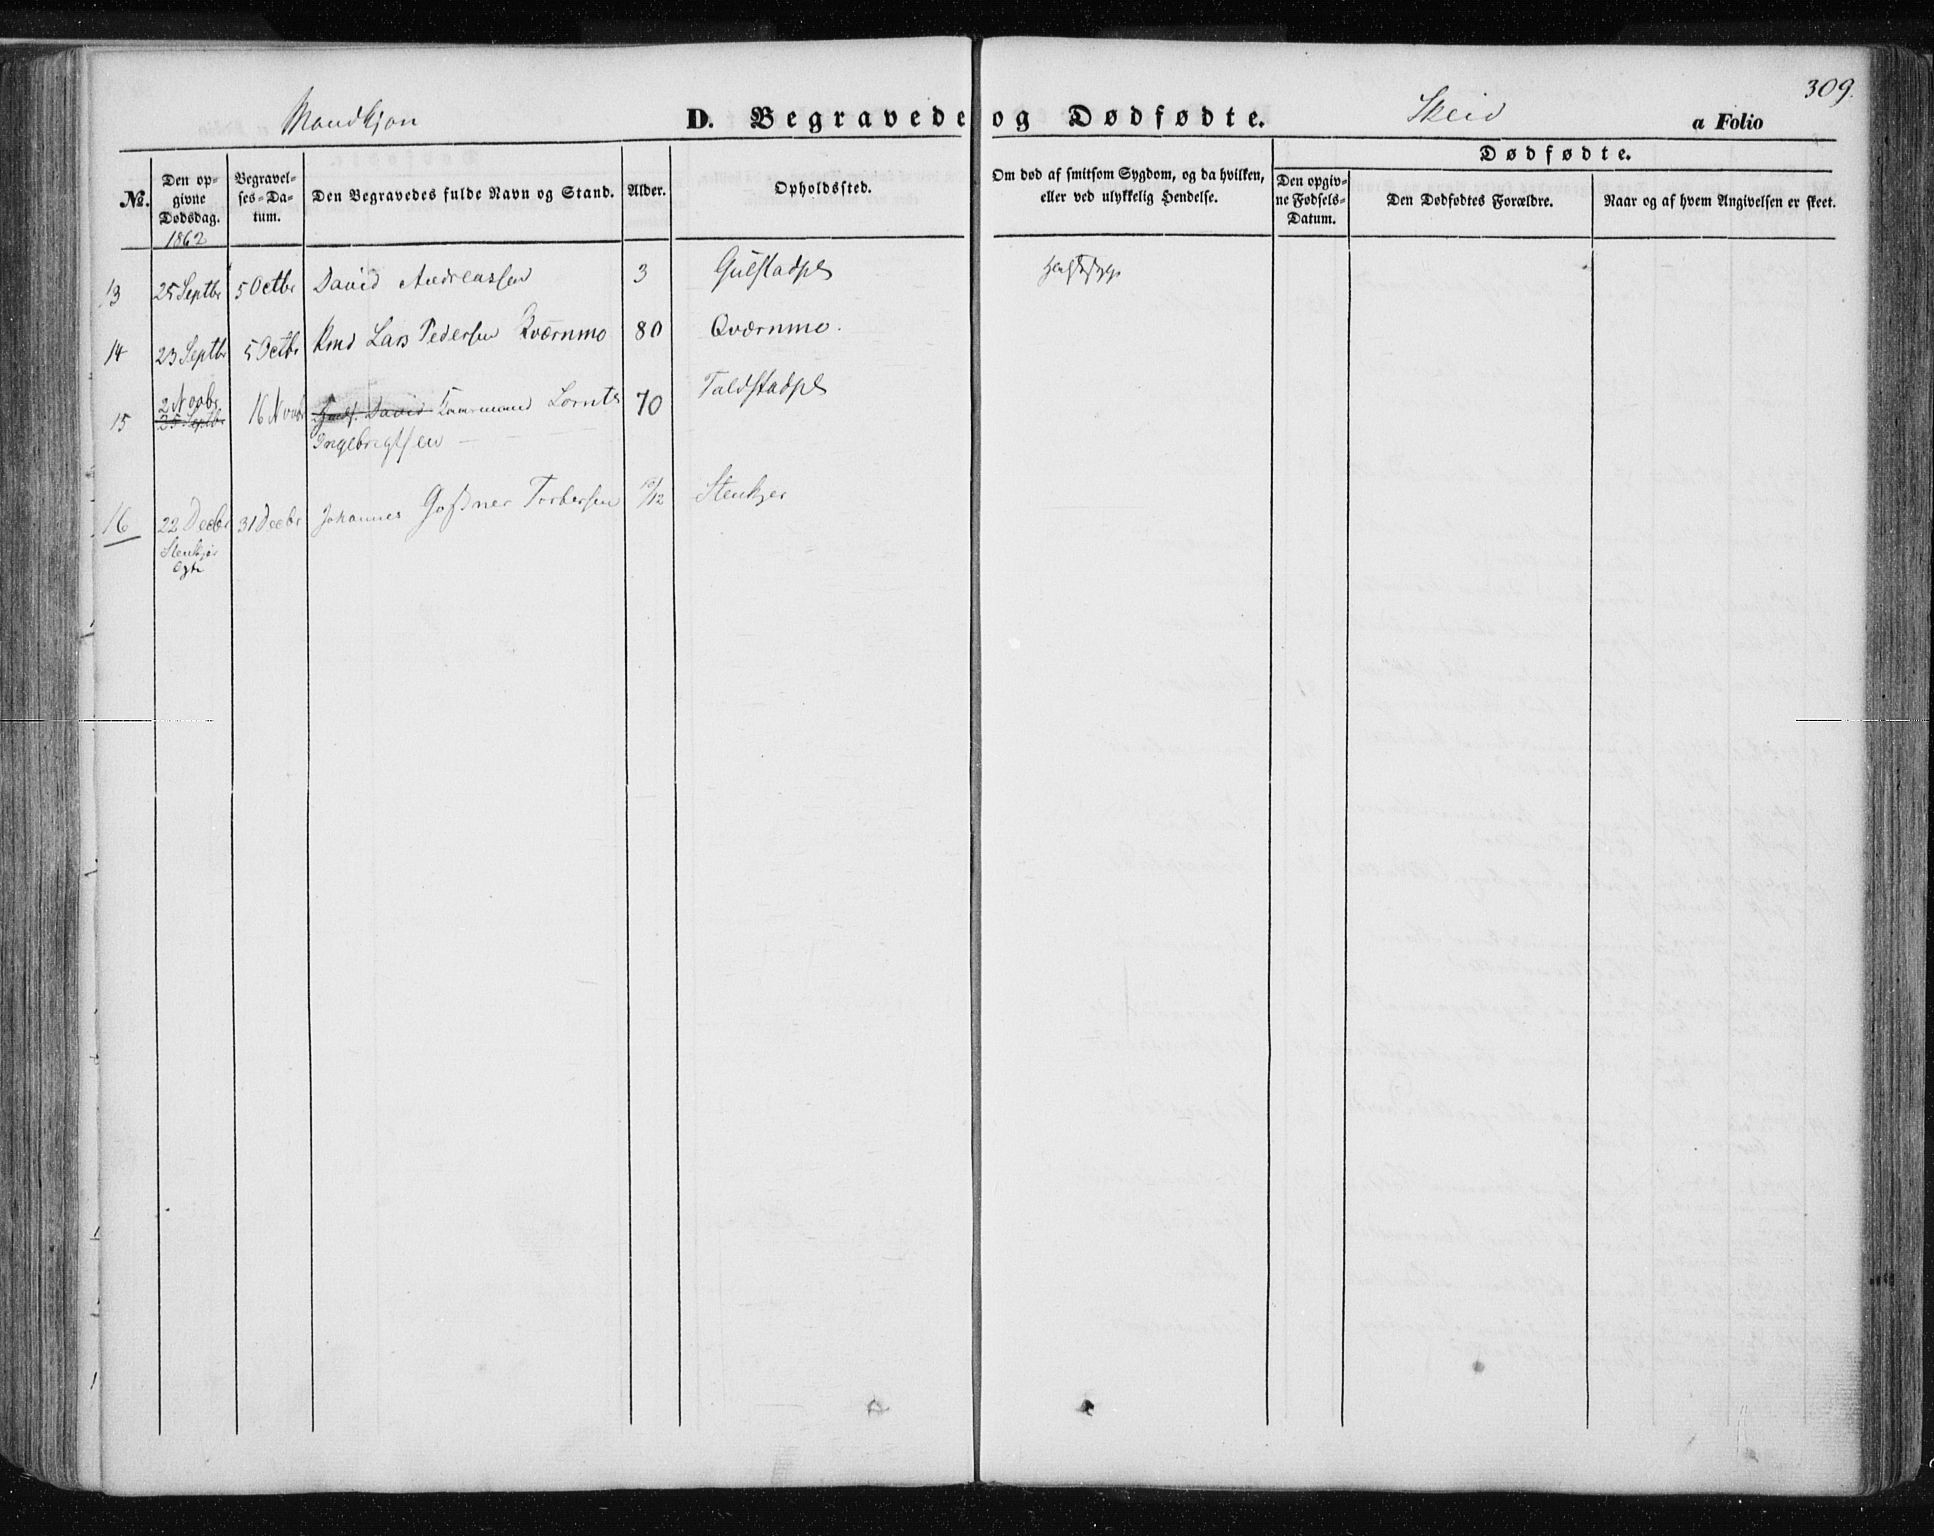 309.
Mandkjøn D. Begravede og Dødfødte. Skeid a Folio
No. Den opgivne Dødsdag. Begravelses-Datum. Den Begravedes fulde Navn og Stand. Alder. Opholdssted. Om død af smitsom Sygdom, og da hvilken, eller ved ulykkelig Hendelse. Dødfødte.
Den opgivne Fødsels-Datum. Den Dødfødtes Forældre. Naar og af hvem Angivelsen er skeet.
1862
13 25 Septbr 5 Octbr David Andreassen 3 Gulstadpl
14 23 Septbr 5 Octbr Kmd Lars Pedersen Kværnmo 80 Qværnmo.
15 2 Novbr 25 Septbr 16 Novbr David Kaarmand Lornts 70 Taldstadpl
Ingebrigtsen
16 22 Decbr 31 Decbr Johannes Gossner Torbersen 10/12 Stenkjer
Stenkjer